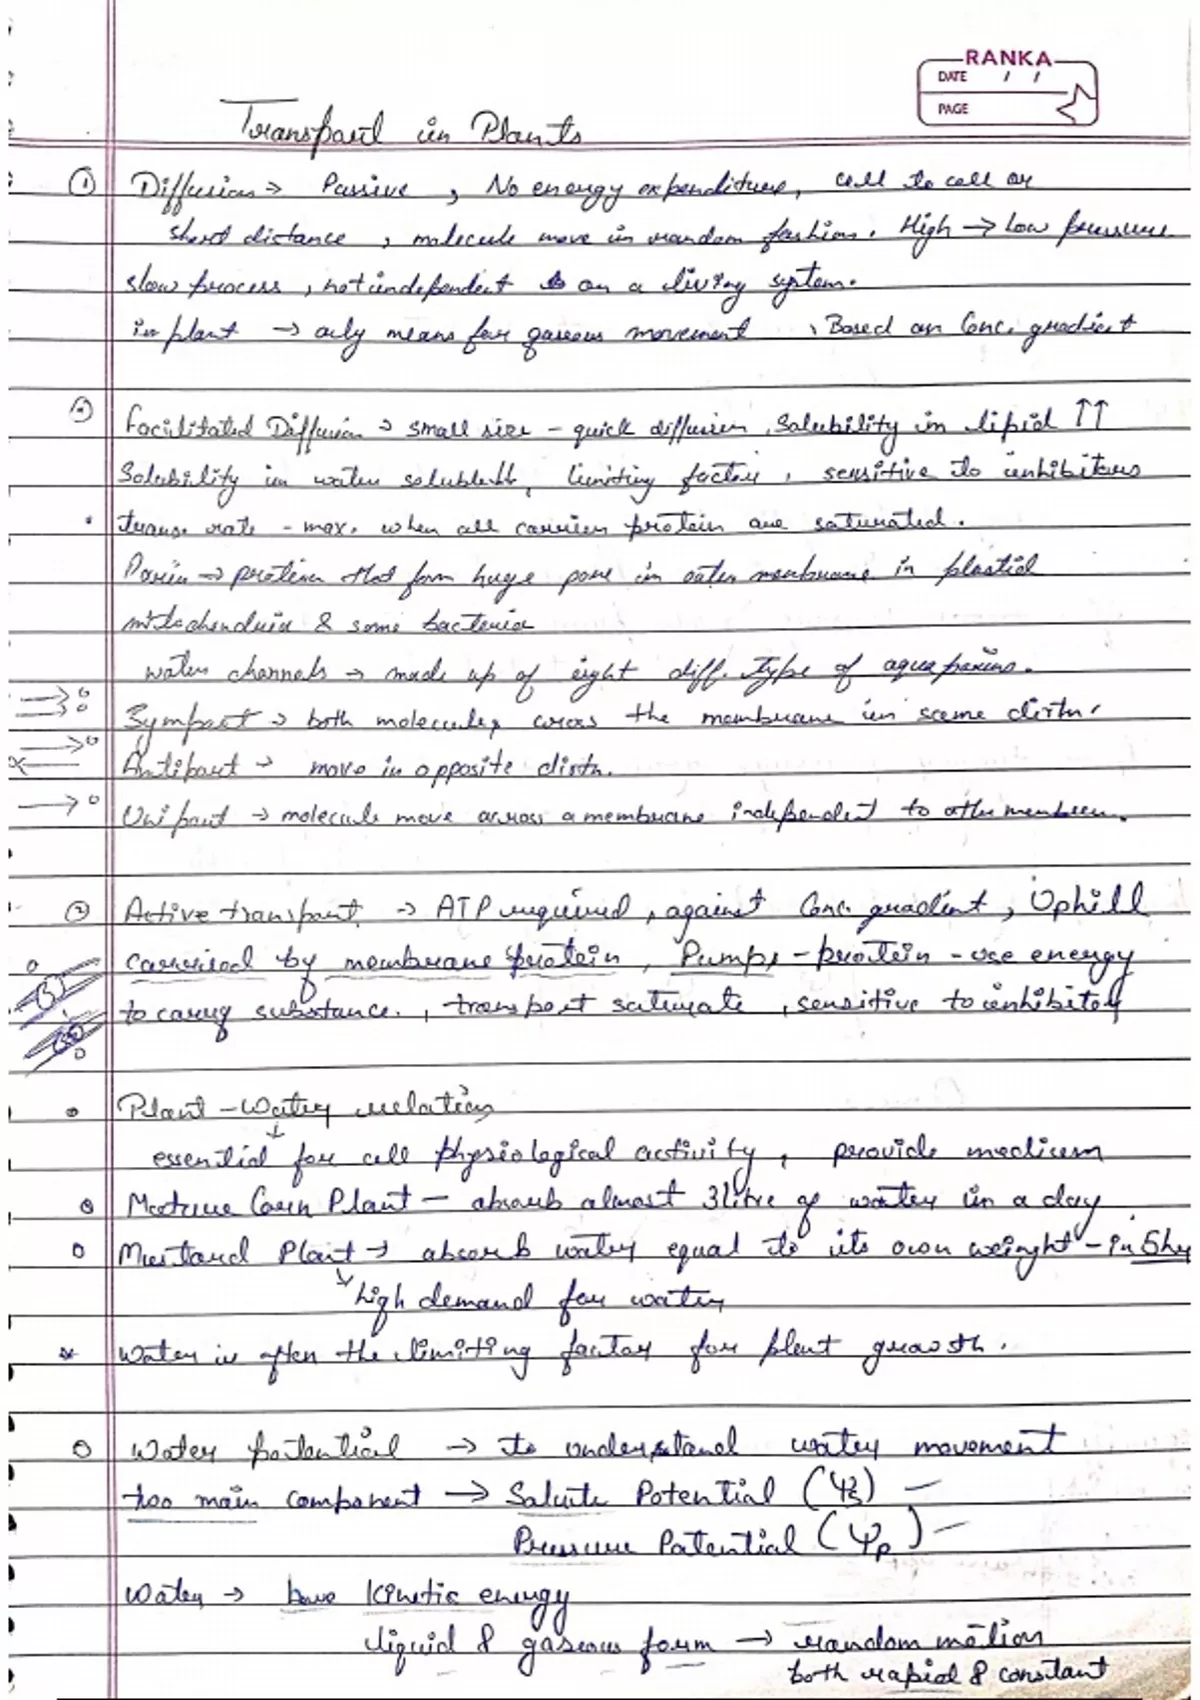 RANKA
DATE / /
PAGE
Transport in Plants
① Diffusion → Passive, No energy expenditure, cell to cell or
short distance, molecule move in random fashion. High → Low pressure
slow process, not independent on a living system.
in plant → only means for gaseous movement, Based on Conc. gradient
Facilitated Diffusion → small size - quick diffusion, Solubility in lipid ↑↑
Solubility in water soluble, limiting factor, sensitive to inhibitors
• trans. rate - max. when all carrier protein are saturated.
Porin → protein that form huge pore in outer membrane in plastid
mitochondria & some bacteria
water channels → made up of eight diff. type of aquaporins.
Symport → both molecules cross the membrane in same dirtn.
Antiport → move in opposite dirtn.
Uniport → molecule move across a membrane independent to other
Active transport → ATP required, against Conc. gradient, Uphill
carried by membrane protein, Pumps - protein - use energy
to carry substance., transport saturate, sensitive to inhibitory
Plant - Water relation
essential for cell physiological activity, provide medium
Mature Corn Plant - absorb almost 3 litre of water in a day
Mustard Plant → absorb water equal to its own weinght - in 5hr
↳ high demand for water
* Water is often the limiting factor for plant growth.
Water potential → to understand water movement
two main component → Solute Potential (Ψs) -
Pressure Potential (Ψp) -
Water → have kinetic energy
liquid & gaseous form → random motion
both rapid & constant